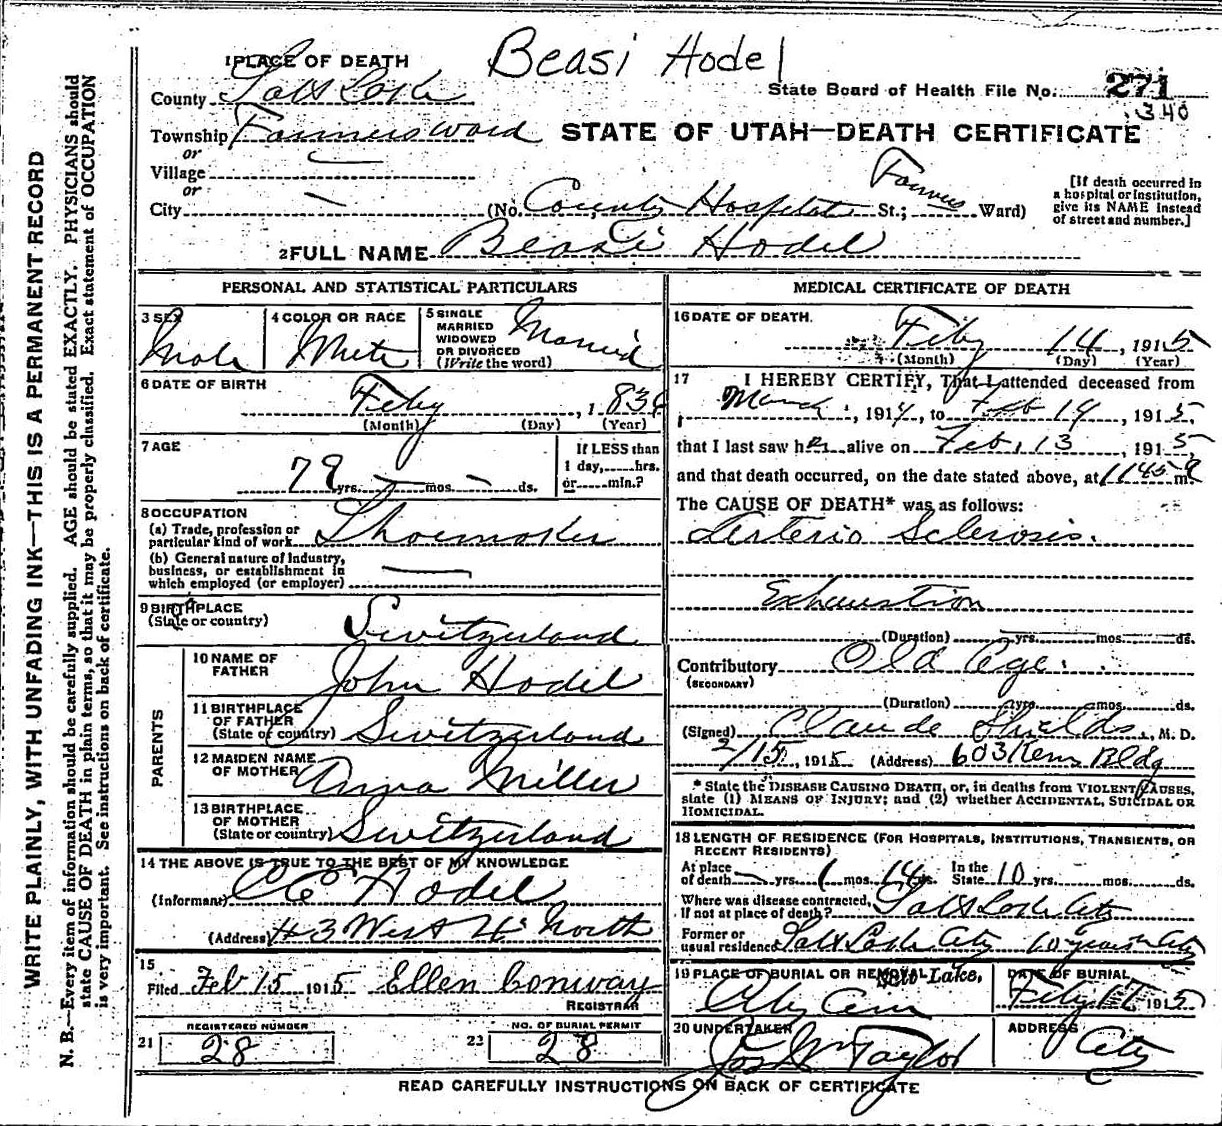 Beasi Hodel
1 PLACE OF DEATH
State Board of Health File No. 271
340
County Salt Lake
Township Farmers Ward
STATE OF UTAH—DEATH CERTIFICATE
or
Village
or
City
(No. County Hospital St.; Farmers Ward)
[If death occurred in
a hospital or institution,
give its NAME instead
of street and number.]
2 FULL NAME Beasi Hodel
PERSONAL AND STATISTICAL PARTICULARS
3 SEX
Male
4 COLOR OR RACE
White
5 SINGLE
MARRIED
WIDOWED
OR DIVORCED
(Write the word)
Married
6 DATE OF BIRTH
Feby , 1 83
(Month) (Day) (Year)
7 AGE
79 yrs. — mos. — ds.
If LESS than
1 day, hrs.
or min.?
8 OCCUPATION
(a) Trade, profession or
particular kind of work Shoemaker
(b) General nature of industry,
business, or establishment in
which employed (or employer)
9 BIRTHPLACE
(State or country) Switzerland
PARENTS
10 NAME OF
FATHER John Hodel
11 BIRTHPLACE
OF FATHER
(State or country) Switzerland
12 MAIDEN NAME
OF MOTHER Anna Miller
13 BIRTHPLACE
OF MOTHER
(State or country) Switzerland
14 THE ABOVE IS TRUE TO THE BEST OF MY KNOWLEDGE
(Informant) C E Hodel
(Address) 43 West 4th North
15
Filed Feb 15 1915 Ellen Conway
REGISTRAR
REGISTERED NUMBER
21 28
NO. OF BURIAL PERMIT
28
MEDICAL CERTIFICATE OF DEATH
16 DATE OF DEATH.
Feby 14 , 1915
(Month) (Day) (Year)
17 I HEREBY CERTIFY, That I attended deceased from
March , 1914, to Feb 14 , 1915,
that I last saw h alive on Feb. 13 1915,
and that death occurred, on the date stated above, at 1145 m.
The CAUSE OF DEATH* was as follows:
Arterio Sclerosis.
Exhaustion
(Duration) yrs. mos. ds.
Contributory Old Age.
(SECONDARY)
(Duration) yrs. mos. ds.
(Signed) Claude Shields, M. D.
2/15, 1915 (Address) 603 Kearns Bldg
* State the DISEASE CAUSING DEATH, or, in deaths from VIOLENT CAUSES,
state (1) MEANS OF INJURY; and (2) whether ACCIDENTAL, SUICIDAL OR
HOMICIDAL.
18 LENGTH OF RESIDENCE (FOR HOSPITALS, INSTITUTIONS, TRANSIENTS, OR
RECENT RESIDENTS)
At place
of death — yrs. 1 mos. 14 ds.
In the
State 10 yrs. mos. ds.
Where was disease contracted,
If not at place of death? Salt Lake City
Former or
usual residence Salt Lake City 10 years in City
19 PLACE OF BURIAL OR REMOVAL Salt Lake,
City Cem
DATE OF BURIAL
Feby 17 1915
20 UNDERTAKER
Jos Wm Taylor
ADDRESS
City
READ CAREFULLY INSTRUCTIONS ON BACK OF CERTIFICATE
WRITE PLAINLY, WITH UNFADING INK—THIS IS A PERMANENT RECORD
N. B.—Every item of information should be carefully supplied. AGE should be stated EXACTLY. PHYSICIANS should
state CAUSE OF DEATH in plain terms, so that it may be properly classified. Exact statement of OCCUPATION
is very important. See instructions on back of certificate.